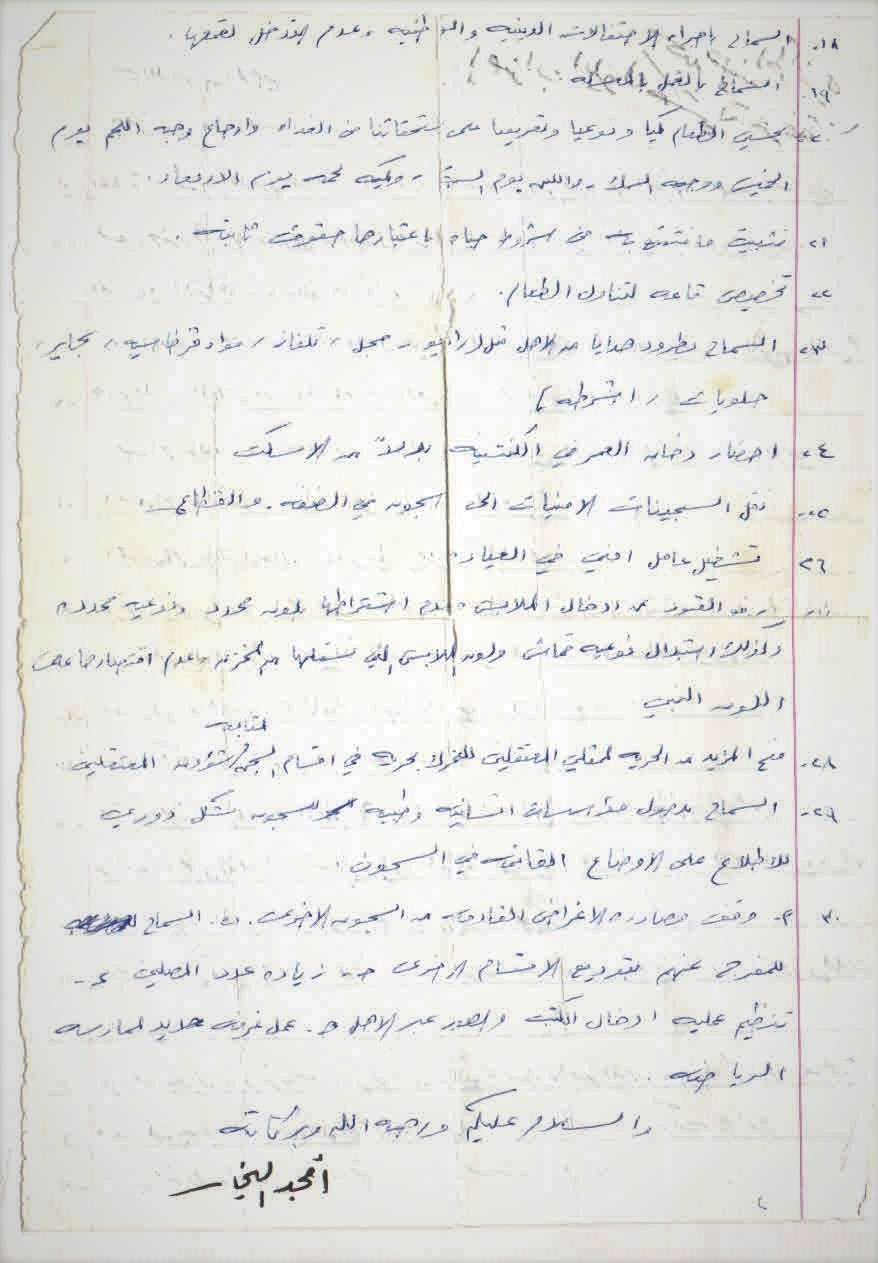 ١٨- السماح باجراء الاحتفالات الدينيه والوطنيه وعدم التدخل لقمعها.
١٩- السماح بالعمل بالمغسله
٢٠- تحسين الطعام كميا ونوعيا وتعريفنا على مستحقاتنا من الغذاء وارجاع وجبه اللحم يوم
الخميس ووجبه السمك واللبن يوم السبت، وكميه لحمه يوم الاربعاء.
٢١- تثبيت ما نتمتع به من شروط حياه باعتبارها حقوق ثابته.
٢٢- تخصيص قاعه لتناول الطعام.
٢٣- السماح بطرود هدايا من الاهل مثل (راديو، مسجل، تلفاز، مواد قرطاسيه، سجاير،
حلويات، اشرطه)
٢٤- احضار دخان العمر في الكنتينه بدلاً من الاسكت
٢٥- نقل السجينات الامنيات الى السجون في الضفه. والقطاع
٢٦ تشغيل عامل امني في العياده
٢٧- رفع القيود عن ادخال الملابس وعدم اشتراطها بلون محدد ونوعيه محدده
وكذلك استبدال نوعيه قماش ولون الملابس التي نستلمها من المخزن وعدم اقتصارها على
اللون البني
٢٨- منح المزيد من الحريه لممثلي المعتقلين للتحرك بحريه في اقسام السجن لمتابعه شؤون المعتقلين
٢٩- السماح بدخول مؤسسات انسانيه وطبيه للسجون بشكل دوري
للاطلاع على الاوضاع القائمه في السجون.
٣٠ أ- وقف مصادره الاغراض القادمه من السجون الاخرى. ب. السماح
للمفرج عنهم بتوديع الاقسام الاخرى ج- زياده عدد المصلين د-
تنظيم عمليه ادخال الكتب والصور عبر الاهل هـ. عمل غرفه لممارسه
الرياضه.
والسلام عليكم ورحمه الله وبركاته
أمجد النجار